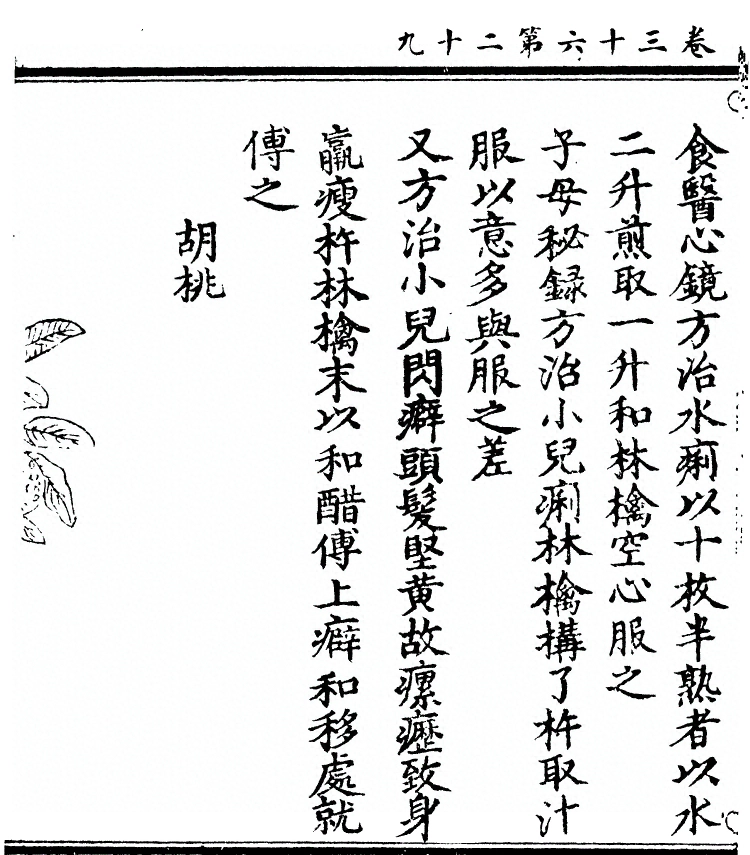 卷三十六第二十九
食醫心鏡方治水痢以十枚半熟者以水
二升煎取一升和林檎空心服之
子母秘録方治小兒痢林檎構了杵取汁
服以意多與服之差
又方治小兒閃癖頭髮堅黄故瘰癧致身
羸瘦杵林檎末以和醋傅上癖和移處就
傅之
胡桃